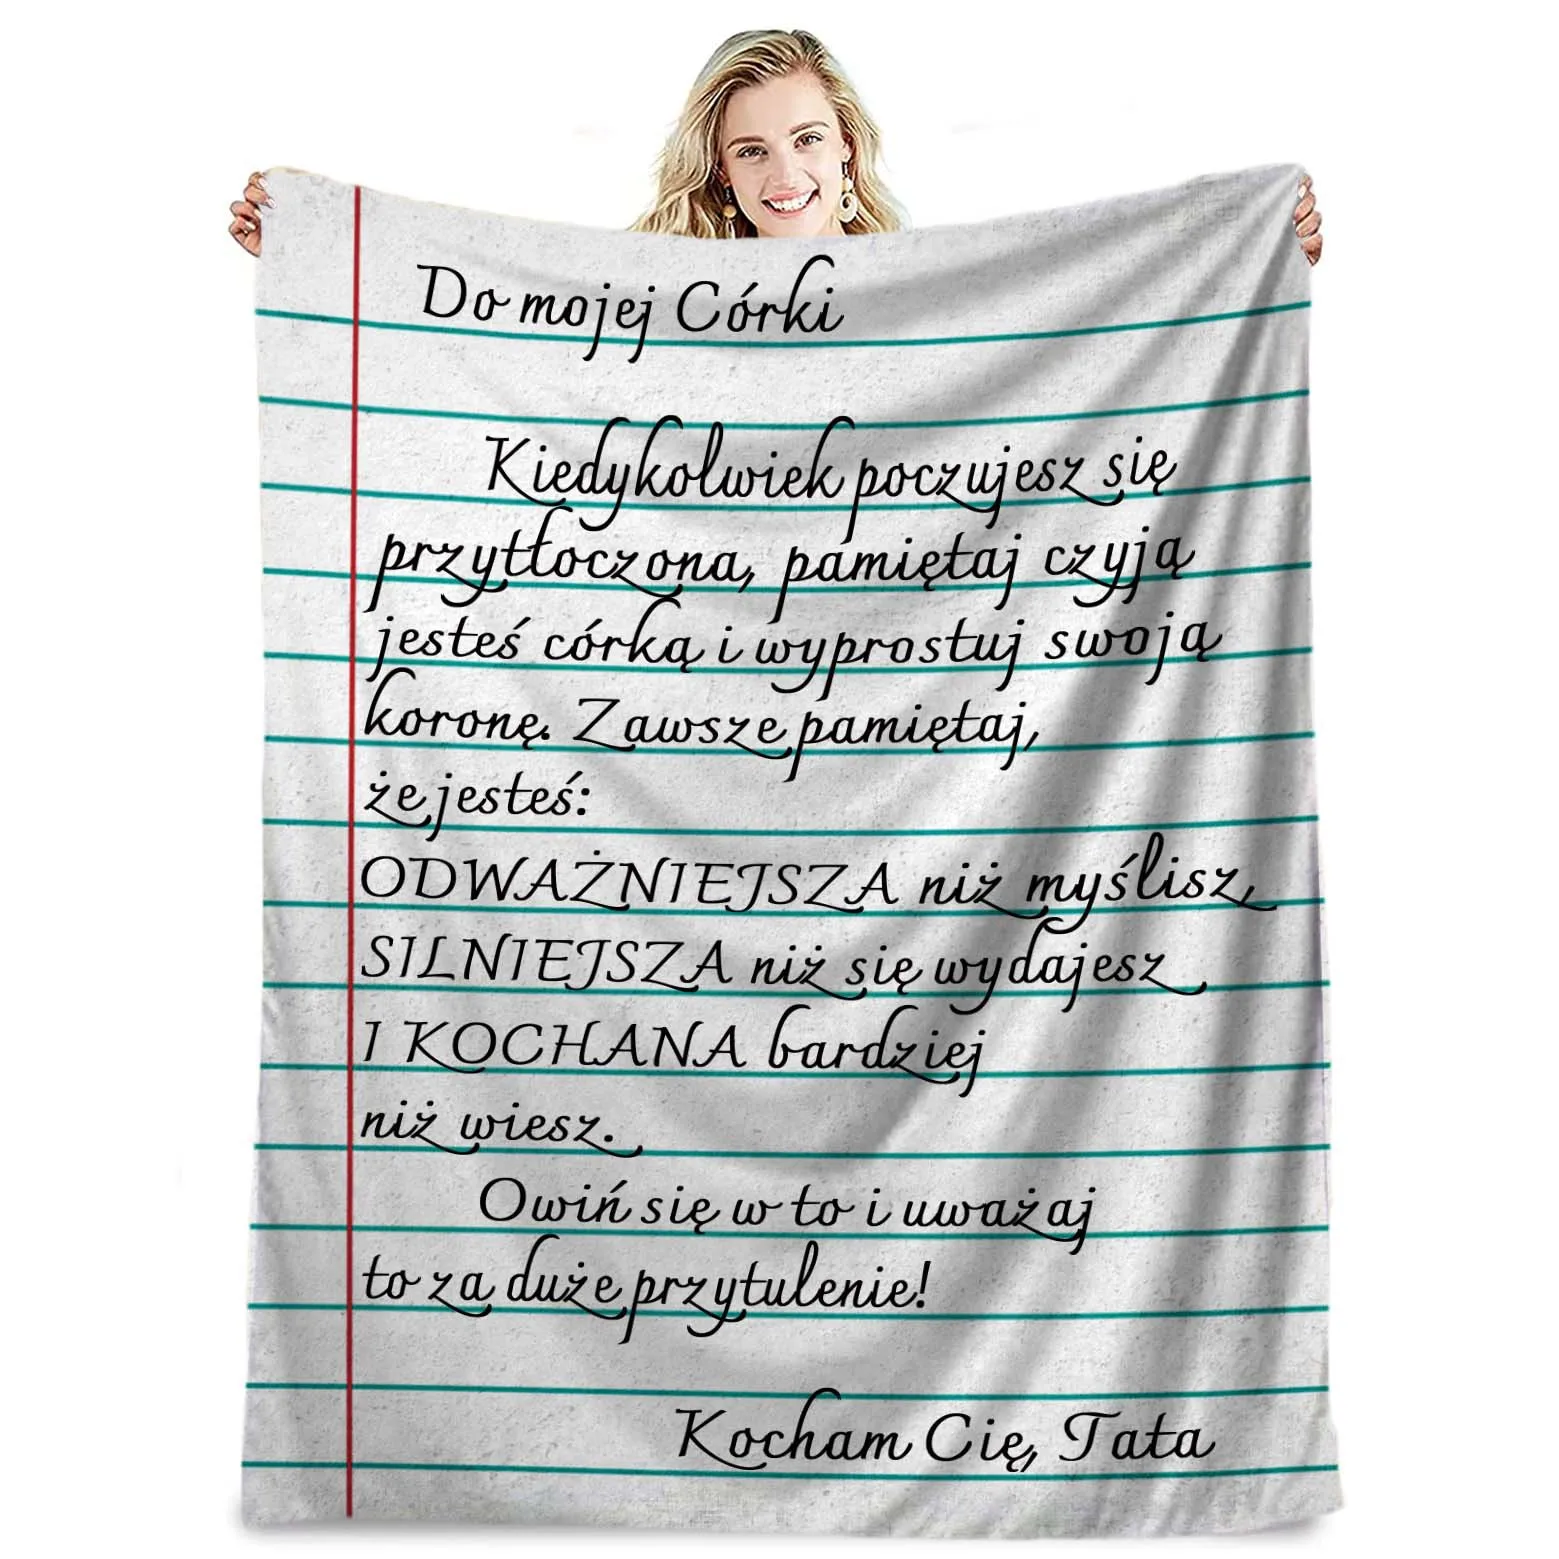 Do mojej Córki
Kiedykolwiek poczujesz się
przytłoczona, pamiętaj czyją
jesteś córką i wyprostuj swoją
koronę. Zawsze pamiętaj,
że jesteś:
ODWAŻNIEJSZA niż myślisz,
SILNIEJSZA niż się wydajesz
I KOCHANA bardziej
niż wiesz.
Owiń się w to i uważaj
to za duże przytulenie!
Kocham Cię, Tata